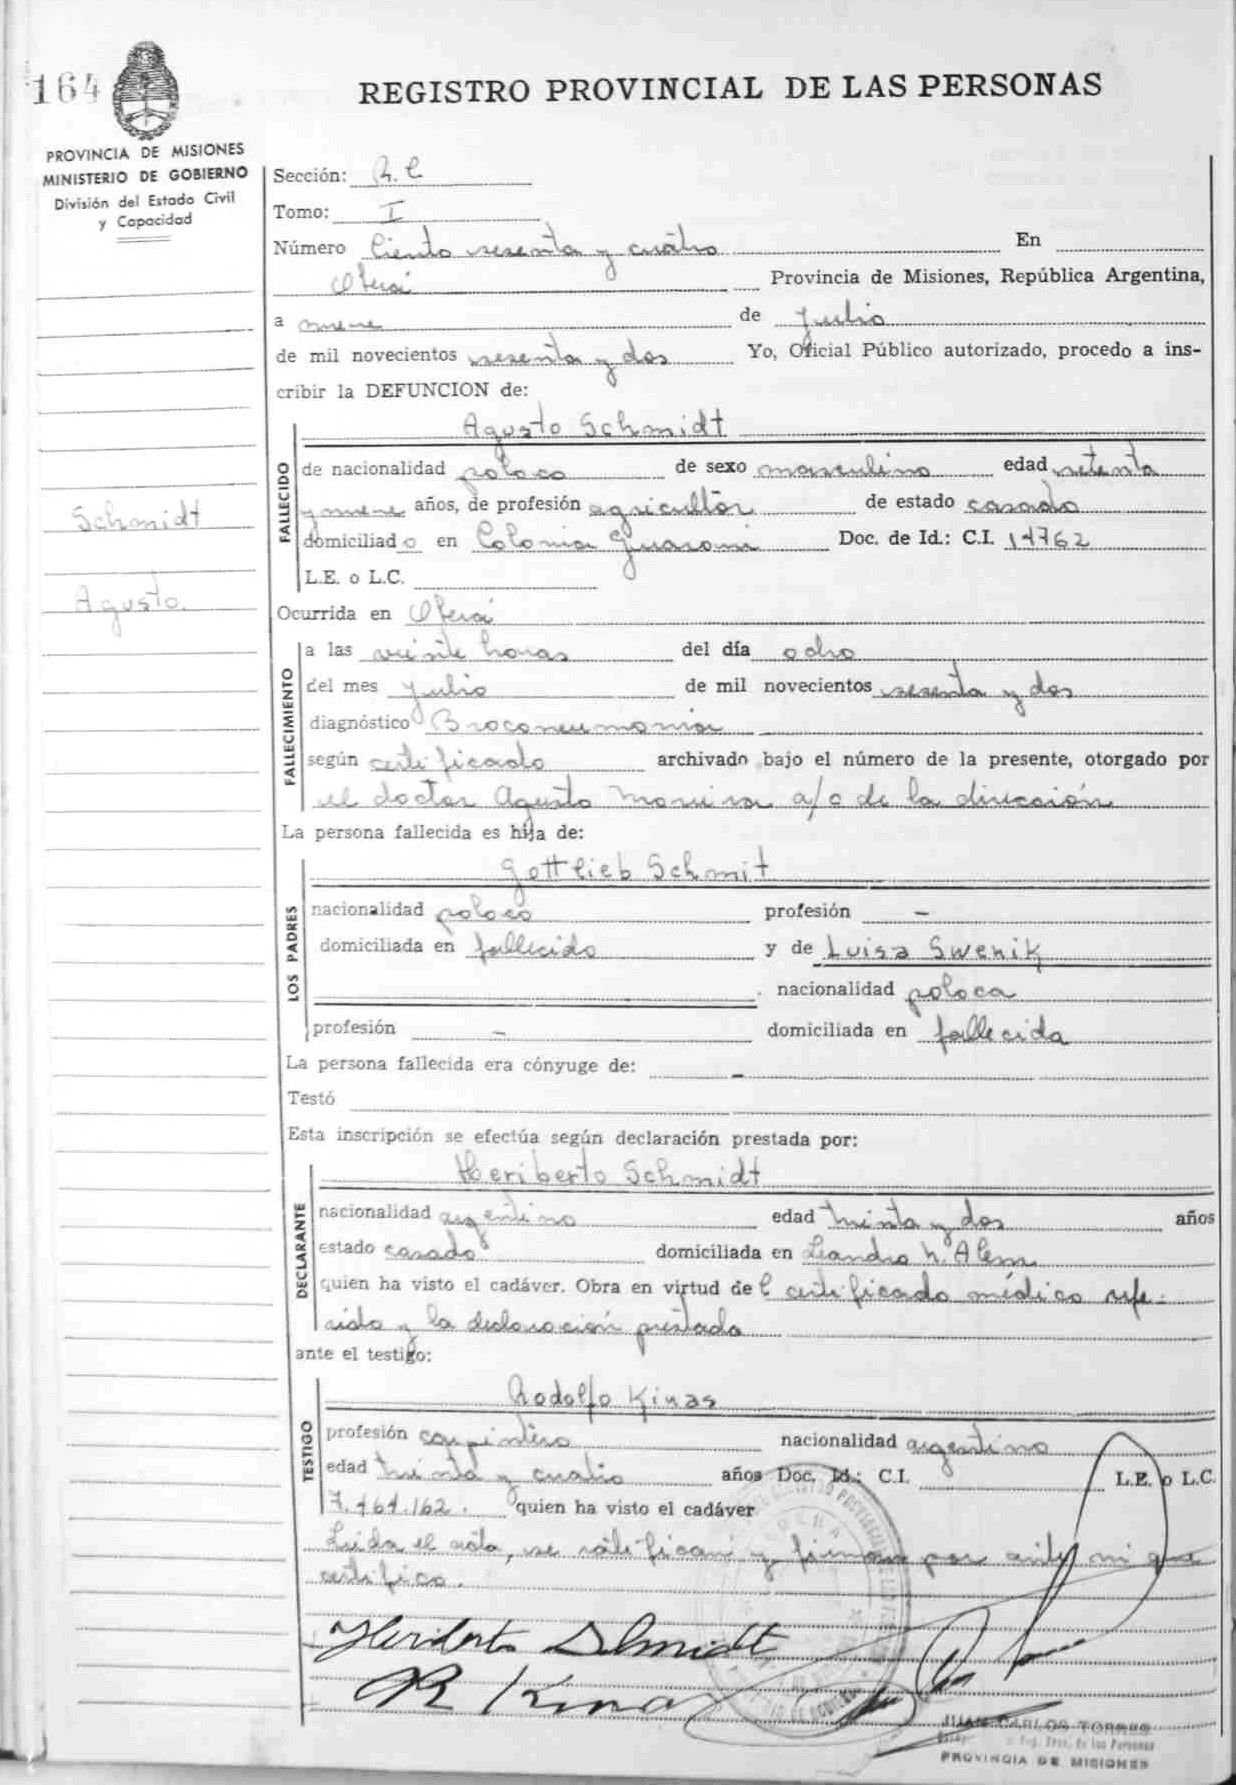 164
REGISTRO PROVINCIAL DE LAS PERSONAS
PROVINCIA DE MISIONES
MINISTERIO DE GOBIERNO
División del Estado Civil
y Capacidad
Sección: R. C
Tomo: I
Número Ciento sesenta y cuatro En
Oberá Provincia de Misiones, República Argentina,
a nueve de Julio
de mil novecientos sesenta y dos Yo, Oficial Público autorizado, procedo a ins-
cribir la DEFUNCION de:
Agusto Schmidt
FALLECIDO
de nacionalidad polaco de sexo masculino edad setenta
y nueve años, de profesión agricultor de estado casado
domiciliado en Colonia Guarani Doc. de Id.: C.I. 14762
L.E. o L.C.
Schmidt
Agusto
Ocurrida en Oberá
FALLECIMIENTO
a las veinte horas del día ocho
del mes Julio de mil novecientos sesenta y dos
diagnóstico Broconeumonia
según certificado archivado bajo el número de la presente, otorgado por
el doctor Agusto a/c de la dirección
La persona fallecida es hija de:
LOS PADRES
Gottlieb Schmit
nacionalidad polaco profesión -
domiciliada en fallecido y de Luisa Swenik
nacionalidad polaca
profesión - domiciliada en fallecida
La persona fallecida era cónyuge de: -
Testó
Esta inscripción se efectúa según declaración prestada por:
DECLARANTE
Heriberto Schmidt
nacionalidad argentino edad treinta y dos años
estado casado domiciliada en Leandro N. Alem
quien ha visto el cadáver. Obra en virtud de l certificado médico refe-
rido y la declaración prestada
ante el testigo:
TESTIGO
Rodolfo Kinas
profesión carpintero nacionalidad argentino
edad treinta y cuatro años Doc. Id.: C.I. L.E. o L.C.
7.464.162. quien ha visto el cadáver
Leida el acta, se ratifican y firman por ante mi que
certifico.
Heriberto Schmidt
R Kinas
JUAN CARLOS TORRES
Reg. Prov. de las Personas
PROVINCIA DE MISIONES